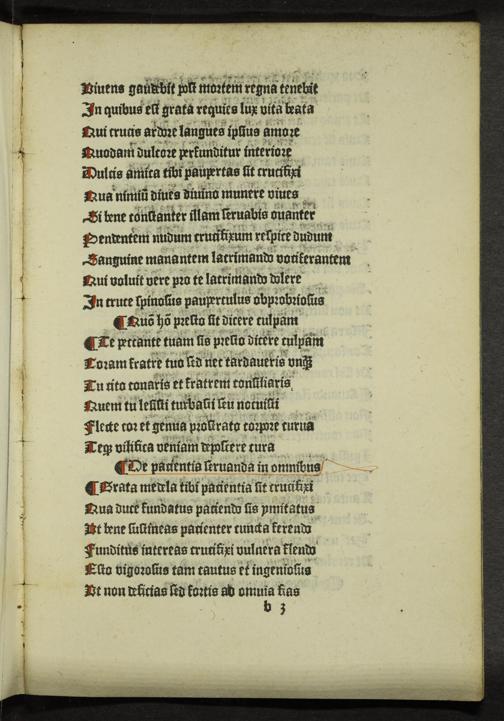 Viuens gaudebit post mortem regna tenebit
In quibus est grata requies lux vita beata
Qui crucis ardore langues ipsius amore
Quodam dulcore perfunditur interiore
Dulcis amica tibi paupertas sit crucifixi
Qua nimiū diues diuino munere viues
Si bene constanter illam seruabis ouanter
Pendentem nudum crucifixum respice dudum
Sanguine manantem lacrimando vociferantem
Qui voluit vere pro te lacrimando dolere
In cruce spinosus pauperculus obprobriosus
¶ Quō hō presto sit dicere culpam
¶ Te peccante tuam sis presto dicere culpam
Coram fratre tuo sed nec tardaueris vnqȝ
Tu cito conaris et fratrem consiliaris
Quem tu lesisti turbasti seu nocuisti
Flecte cor et genua prostrato corpore curua
Teqȝ vilifica veniam deposcere cura
¶ De paciencia seruanda in omnibus
¶ Grata medela tibi paciencia sit crucifixi
Qua duce fundatus paciendo sis ymitatus
Vt bene sustineas pacienter cuncta ferendo
Funditus intereas crucifixi vulnera flendo
Esto vigorosus tam cautus et ingeniosus
Vt non deficias sed fortis ad omnia fias
b 3